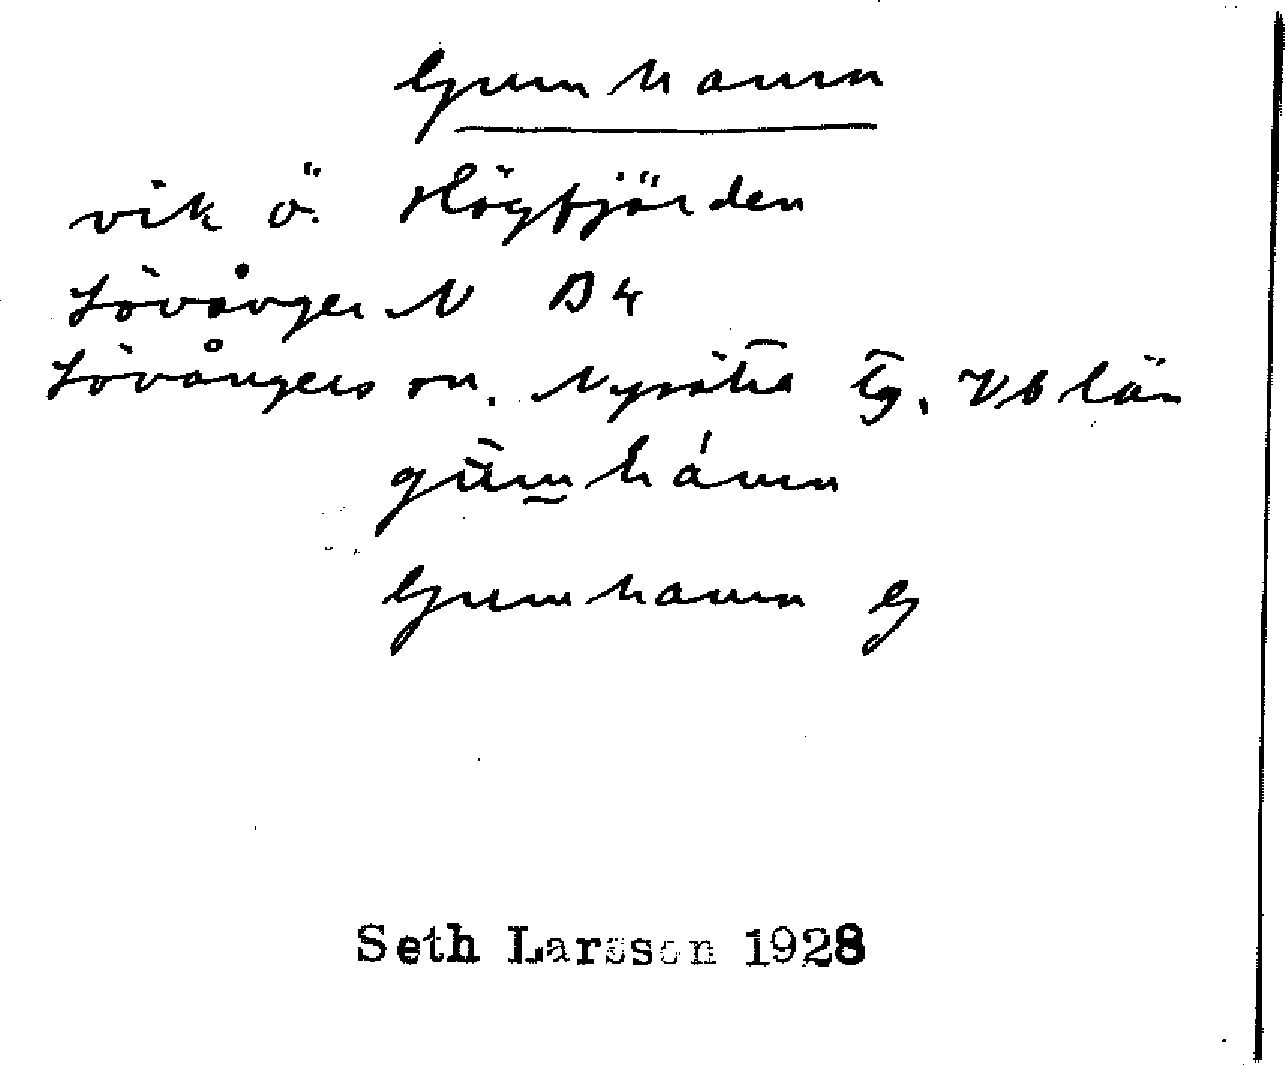 Gumhamn
vik Ö. Högfjärden
Lövånger N B4
Lövångers sn. Nysätra Tg. Vb län
gùmhámn
Gumhamn G
Seth Larsson 1928